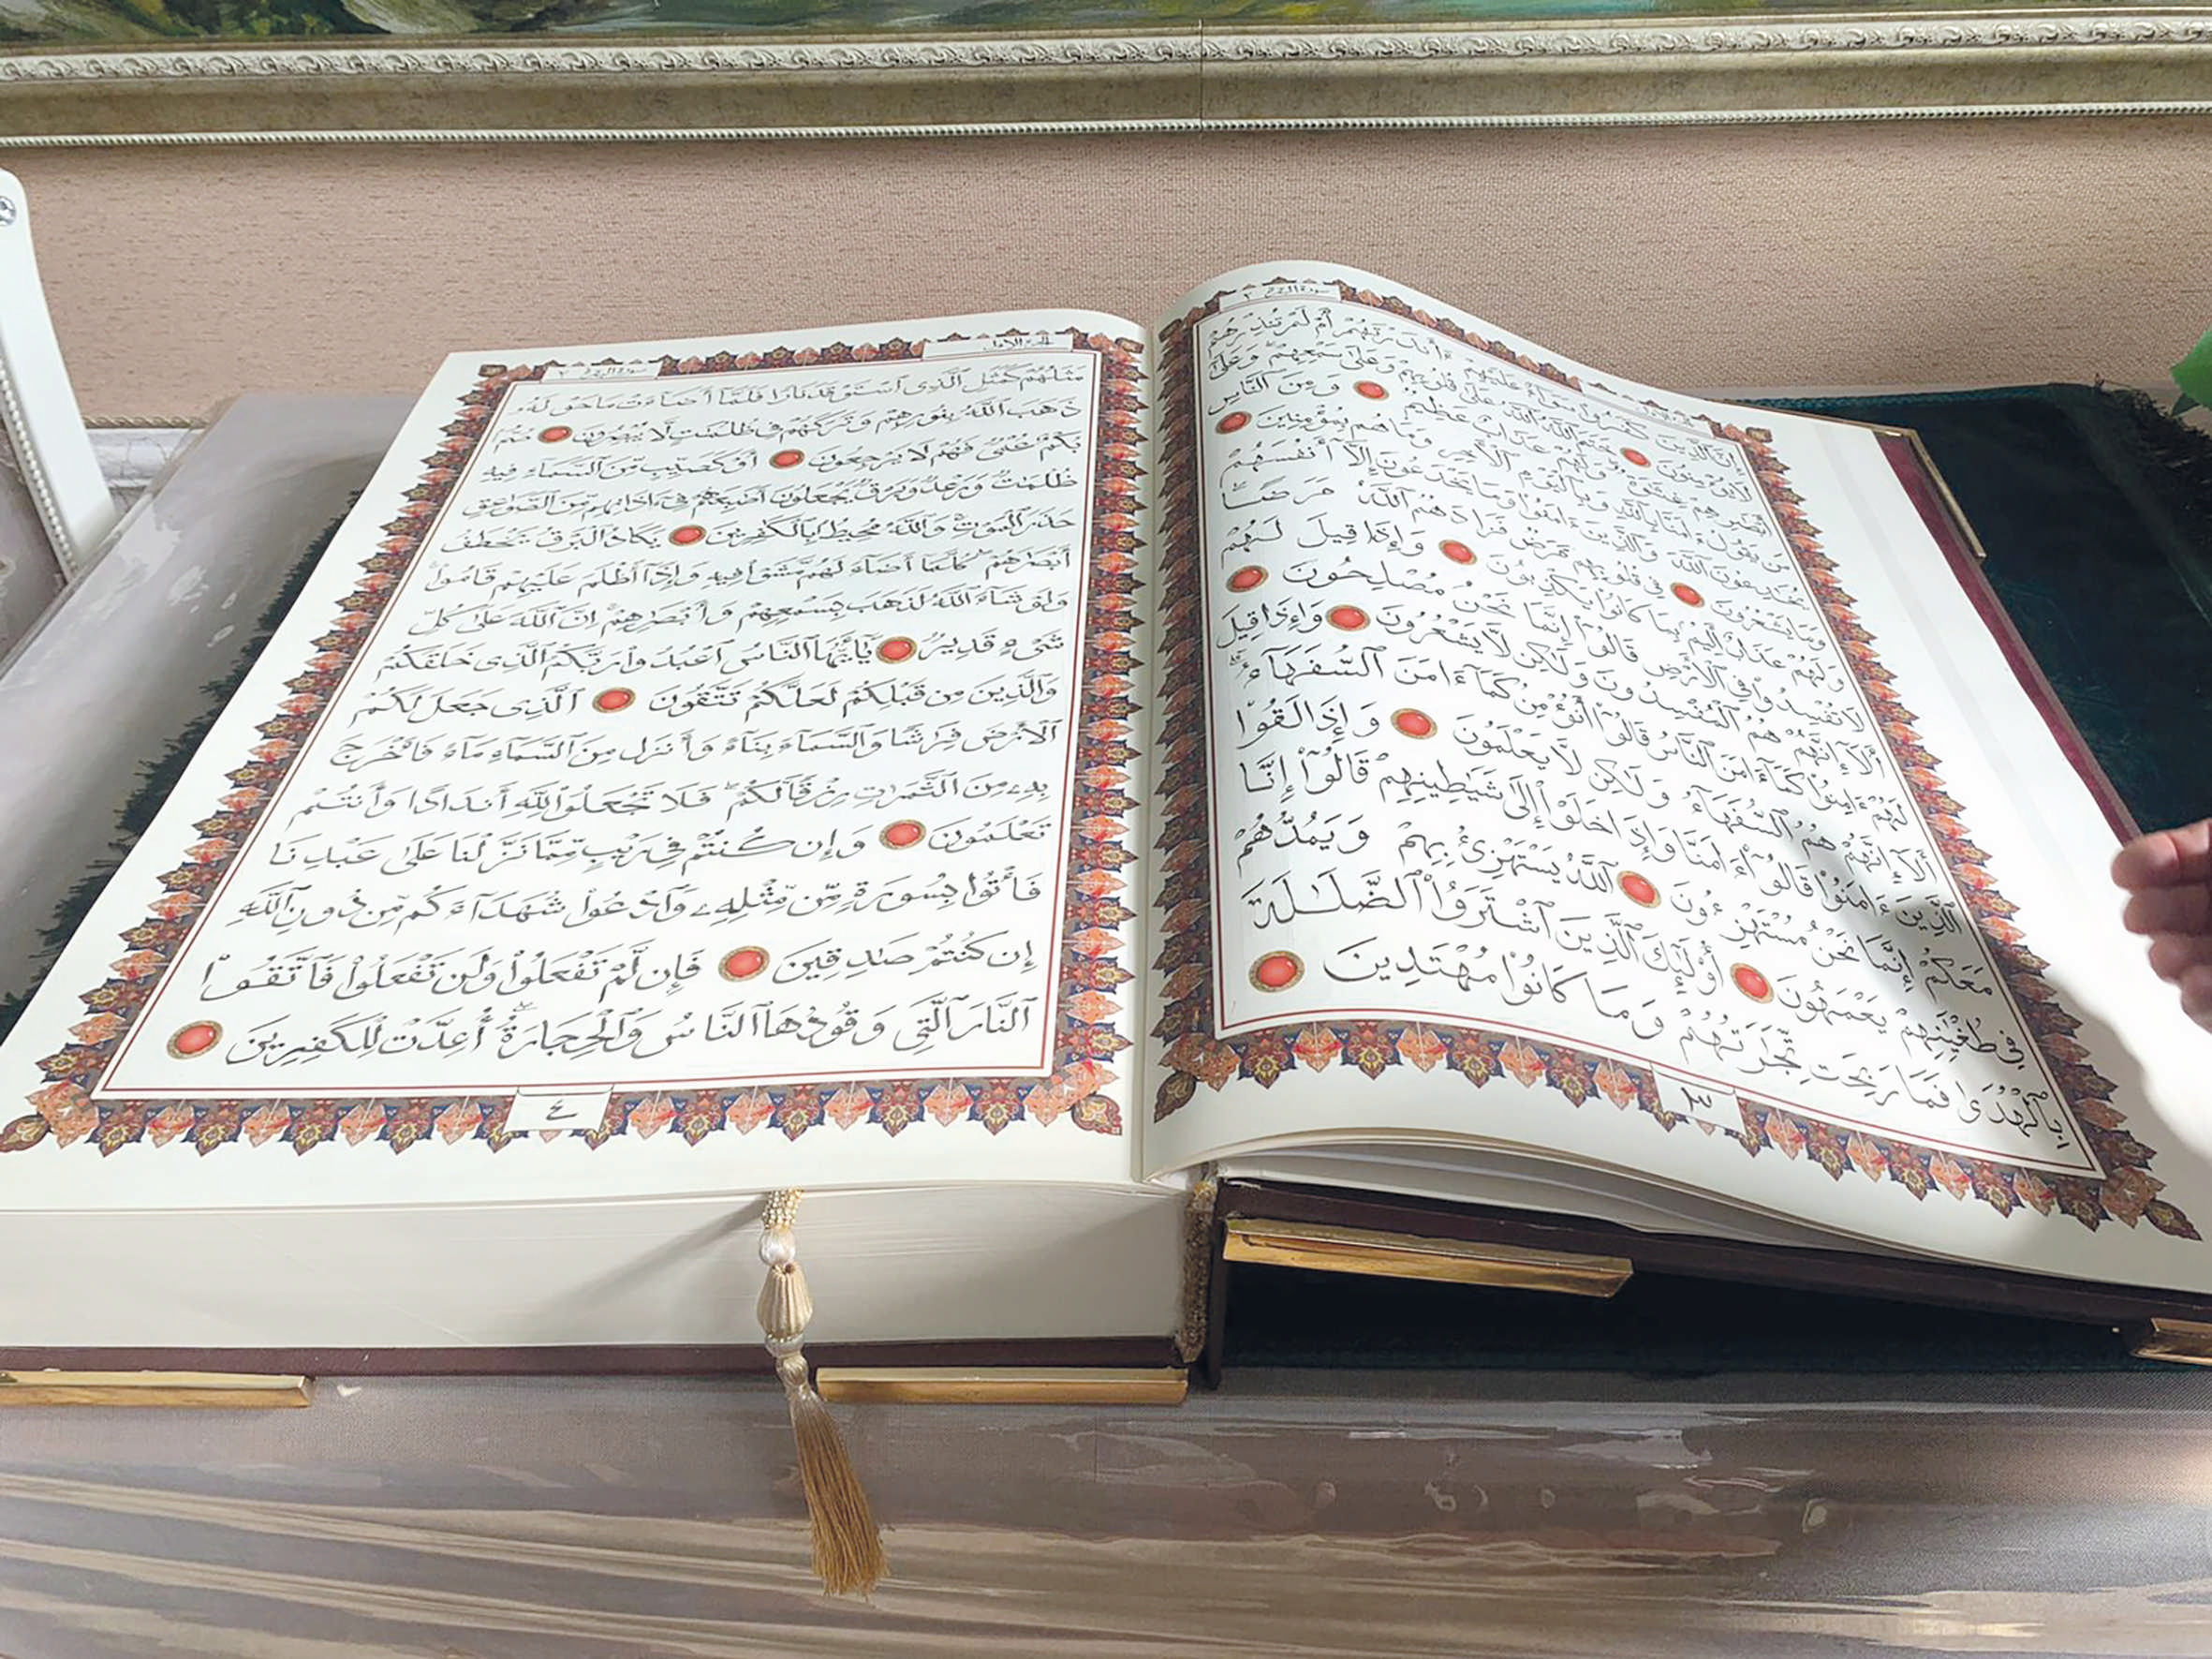 سورة البقرة ٢
إِنَّ ٱلَّذِينَ كَفَرُوا۟ سَوَآءٌ عَلَيْهِمْ ءَأَنذَرْتَهُمْ أَمْ لَمْ تُنذِرْهُمْ
لَا يُؤْمِنُونَ خَتَمَ ٱللَّهُ عَلَىٰ قُلُوبِهِمْ وَعَلَىٰ سَمْعِهِمْ ۖ وَعَلَىٰٓ
أَبْصَٰرِهِمْ غِشَٰوَةٌ ۖ وَلَهُمْ عَذَابٌ عَظِيمٌ وَمِنَ ٱلنَّاسِ
مَن يَقُولُ ءَامَنَّا بِٱللَّهِ وَبِٱلْيَوْمِ ٱلْأَخِرِ وَمَا هُم بِمُؤْمِنِينَ
يُخَٰدِعُونَ ٱللَّهَ وَٱلَّذِينَ ءَامَنُوا۟ وَمَا يَخْدَعُونَ إِلَّآ أَنفُسَهُمْ
وَمَا يَشْعُرُونَ فِى قُلُوبِهِم مَّرَضٌ فَزَادَهُمُ ٱللَّهُ مَرَضًا ۖ
وَلَهُمْ عَذَابٌ أَلِيمٌۢ بِمَا كَانُوا۟ يَكْذِبُونَ وَإِذَا قِيلَ لَهُمْ
لَا تُفْسِدُوا۟ فِى ٱلْأَرْضِ قَالُوٓا۟ إِنَّمَا نَحْنُ مُصْلِحُونَ
أَلَآ إِنَّهُمْ هُمُ ٱلْمُفْسِدُونَ وَلَٰكِن لَّا يَشْعُرُونَ وَإِذَا قِيلَ
لَهُمْ ءَامِنُوا۟ كَمَآ ءَامَنَ ٱلنَّاسُ قَالُوٓا۟ أَنُؤْمِنُ كَمَآ ءَامَنَ ٱلسُّفَهَآءُ ۗ
أَلَآ إِنَّهُمْ هُمُ ٱلسُّفَهَآءُ وَلَٰكِن لَّا يَعْلَمُونَ وَإِذَا لَقُوا۟
ٱلَّذِينَ ءَامَنُوا۟ قَالُوٓا۟ ءَامَنَّا وَإِذَا خَلَوْا۟ إِلَىٰ شَيَٰطِينِهِمْ قَالُوٓا۟ إِنَّا
مَعَكُمْ إِنَّمَا نَحْنُ مُسْتَهْزِءُونَ ٱللَّهُ يَسْتَهْزِئُ بِهِمْ وَيَمُدُّهُمْ
فِى طُغْيَٰنِهِمْ يَعْمَهُونَ أُو۟لَٰٓئِكَ ٱلَّذِينَ ٱشْتَرَوُا۟ ٱلضَّلَٰلَةَ
بِٱلْهُدَىٰ فَمَا رَبِحَت تِّجَٰرَتُهُمْ وَمَا كَانُوا۟ مُهْتَدِينَ
٣
الجزء الاول
سورة البقرة ٢
مَثَلُهُمْ كَمَثَلِ ٱلَّذِى ٱسْتَوْقَدَ نَارًا فَلَمَّآ أَضَآءَتْ مَا حَوْلَهُۥ
ذَهَبَ ٱللَّهُ بِنُورِهِمْ وَتَرَكَهُمْ فِى ظُلُمَٰتٍ لَّا يُبْصِرُونَ صُمٌّۢ
بُكْمٌ عُمْىٌ فَهُمْ لَا يَرْجِعُونَ أَوْ كَصَيِّبٍ مِّنَ ٱلسَّمَآءِ فِيهِ
ظُلُمَٰتٌ وَرَعْدٌ وَبَرْقٌ يَجْعَلُونَ أَصَٰبِعَهُمْ فِىٓ ءَاذَانِهِم مِّنَ ٱلصَّوَٰعِقِ
حَذَرَ ٱلْمَوْتِ ۚ وَٱللَّهُ مُحِيطٌۢ بِٱلْكَٰفِرِينَ يَكَادُ ٱلْبَرْقُ يَخْطَفُ
أَبْصَٰرَهُمْ ۖ كُلَّمَآ أَضَآءَ لَهُم مَّشَوْا۟ فِيهِ وَإِذَآ أَظْلَمَ عَلَيْهِمْ قَامُوا۟ ۚ
وَلَوْ شَآءَ ٱللَّهُ لَذَهَبَ بِسَمْعِهِمْ وَأَبْصَٰرِهِمْ ۚ إِنَّ ٱللَّهَ عَلَىٰ كُلِّ
شَىْءٍ قَدِيرٌ يَٰٓأَيُّهَا ٱلنَّاسُ ٱعْبُدُوا۟ رَبَّكُمُ ٱلَّذِى خَلَقَكُمْ
وَٱلَّذِينَ مِن قَبْلِكُمْ لَعَلَّكُمْ تَتَّقُونَ ٱلَّذِى جَعَلَ لَكُمُ
ٱلْأَرْضَ فِرَٰشًا وَٱلسَّمَآءَ بِنَآءً وَأَنزَلَ مِنَ ٱلسَّمَآءِ مَآءً فَأَخْرَجَ
بِهِۦ مِنَ ٱلثَّمَرَٰتِ رِزْقًا لَّكُمْ ۖ فَلَا تَجْعَلُوا۟ لِلَّهِ أَندَادًا وَأَنتُمْ
تَعْلَمُونَ وَإِن كُنتُمْ فِى رَيْبٍ مِّمَّا نَزَّلْنَا عَلَىٰ عَبْدِنَا
فَأْتُوا۟ بِسُورَةٍ مِّن مِّثْلِهِۦ وَٱدْعُوا۟ شُهَدَآءَكُم مِّن دُونِ ٱللَّهِ
إِن كُنتُمْ صَٰدِقِينَ فَإِن لَّمْ تَفْعَلُوا۟ وَلَن تَفْعَلُوا۟ فَٱتَّقُوا۟
ٱلنَّارَ ٱلَّتِى وَقُودُهَا ٱلنَّاسُ وَٱلْحِجَارَةُ ۖ أُعِدَّتْ لِلْكَٰفِرِينَ
٤